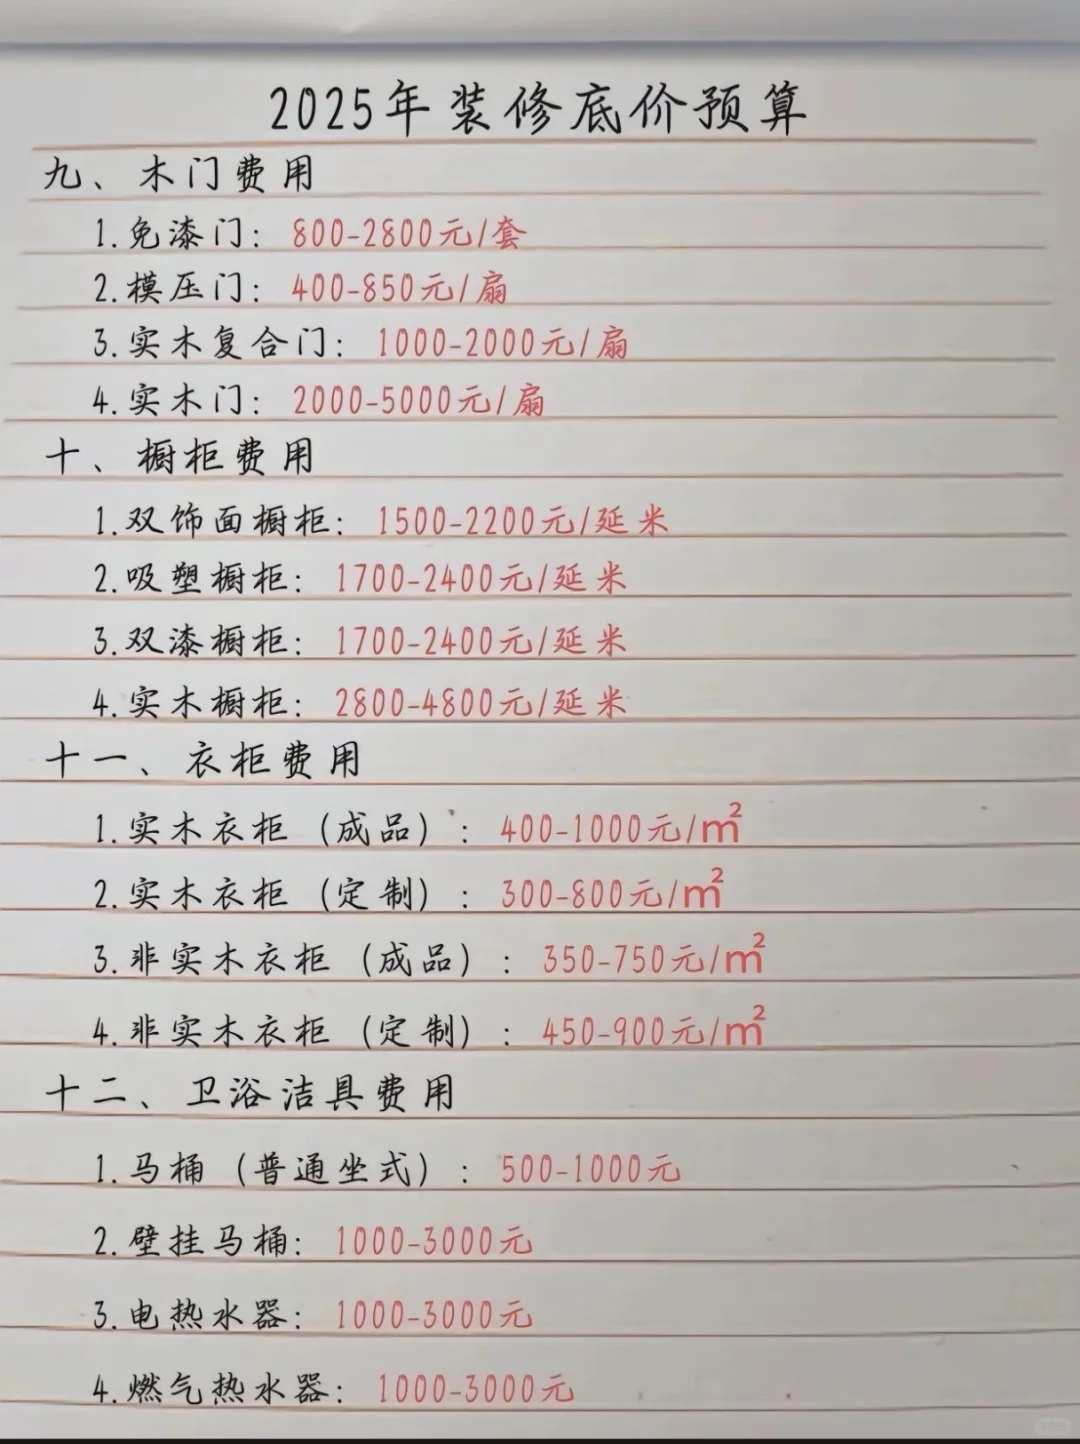 2025年装修底价预算
九、木门费用
1.免漆门：800-2800元/套
2.模压门：400-850元/扇
3.实木复合门：1000-2000元/扇
4.实木门：2000-5000元/扇
十、橱柜费用
1.双饰面橱柜：1500-2200元/延米
2.吸塑橱柜：1700-2400元/延米
3.双漆橱柜：1700-2400元/延米
4.实木橱柜：2800-4800元/延米
十一、衣柜费用
1.实木衣柜（成品）：400-1000元/㎡
2.实木衣柜（定制）：300-800元/㎡
3.非实木衣柜（成品）：350-750元/㎡
4.非实木衣柜（定制）：450-900元/㎡
十二、卫浴洁具费用
1.马桶（普通坐式）：500-1000元
2.壁挂马桶：1000-3000元
3.电热水器：1000-3000元
4.燃气热水器：1000-3000元